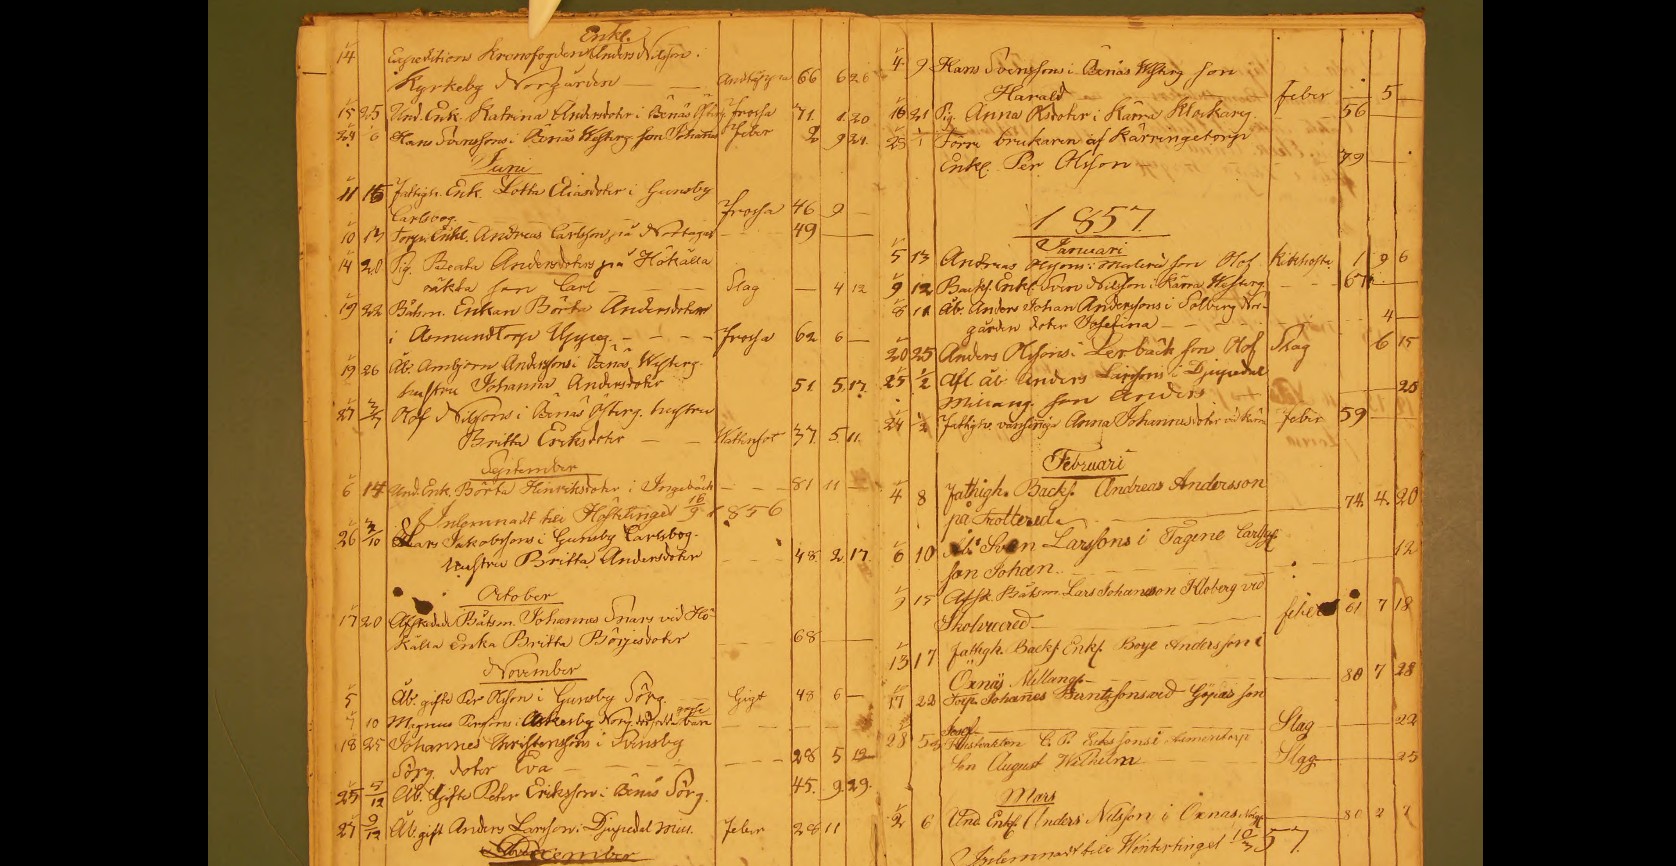 Enkl.
14 Expedition Kronofogden Anders Nilson.
Kyrkeby Norgården 66 6 26
15 25 Und. Enk. Katrina Andersdoter i Benäs Österg. Frossa 71. 1 20
24 6 Hans Svensons i Benäs Westerg son Johanes Feber 2 9 24.
Juni
11 15 Fattigh. Enk. Lotta Eliasdoter i Gunsby
Carlsbog. Frossa 46 9
10 13 Torp. Enkl. Andreas Carlson på Nortagen 49
14 20 Pig. Beata Andersdoters på Hökälla
oäkta son Carl Slag 4 12
19 22 Båtsm. Enkan Börta Andersdoter
i Aemundtorp Uppeg. Frossa 62 6
19 26 Åb. Ambjörn Andersons i Benäs Westerg.
hustru Johanna Andersdoter 51. 5 17
27 Olof Nilsons i Benäs Österg. hustru
Britta Eriksdoter Wattensot 37. 5 11.
September
6 14 Und. Enk. Börta Hinriksdoter i Ingebäck 81 11
Inlemnadt till Hösttinget 16/9 1856
26 2/10 Lars Jakobsons i Gunsby Carlsbog.
hustru Britta Andersdoter 48 2 17.
October
17 20 Afskeded Båtsm. Johannes Snars vid Hö-
källa enka Britta Börjesdoter 68
November
5 Åb. gifte Per Olson i Gunsby Sörg. Gigt 48 6
7 10 Magnus Persons i Askesby Norg. barn
18 25 Johannes Christensons i Svensby
Sörg. doter Eva 28 5 12
25 5/12 Åb. Gifte Peter Erikson i Benäs Sörg. 45. 9 29.
27 9/12 Åb. gift Anders Larson i Djupedal Feber 28 11
December
4. 9 Hans Svensons i Benäs Westerg son
Harald Feber 5
16 21 Pig. Anna Olsdoter i Kärra Klockareg. 56
25 Förre brukaren af Kärringetorp
Enkl. Per Olson 79
1857.
Januari
5 13 Andreas Olsons i son Olof Kikhosta 1 9 6
9 12 Backs. Enkl. Sven Nilson i Kärra Westerg. 67
8 11 Åb. Anders Johan Andersons i Solberg Nor-
gården doter Josefina 4
20 25 Anders Olsons i Lerbäck son Olof Slag 6 15
25 1/2 Afl. åb. Anders Larsons i Djupedal
Mellang. son Anders. 25
24 1/2 Fattighs. Anna Johannesdoter vid Kärra Feber 59
Februari
4 8 Fattigh. Backs. Andreas Andersson
på Trottered 74. 4. 20
6 10 Åb. Sven Larsons i Tagene
son Johan 12
9 15 Afsk. Båtsm. Lars Johanson Kloberg vid
Skolvered feber 61 7 18
13 17 Fattigh. Backs. Enkl. Börje Anderson i
Oxnäs Mellang. 80 7 28
17 22 Torp. Johanes Bentzsons ved son
Josef Slag 22
28 5/3 C. P. Ericksons i Aementorp
son August Wilhelm Slag 25
Mars
2 6 Und. Enkl. Anders Nilson i Oxnäs Norg. 80 2 7
Inlemnadt till Wintertinget 10/3 57.